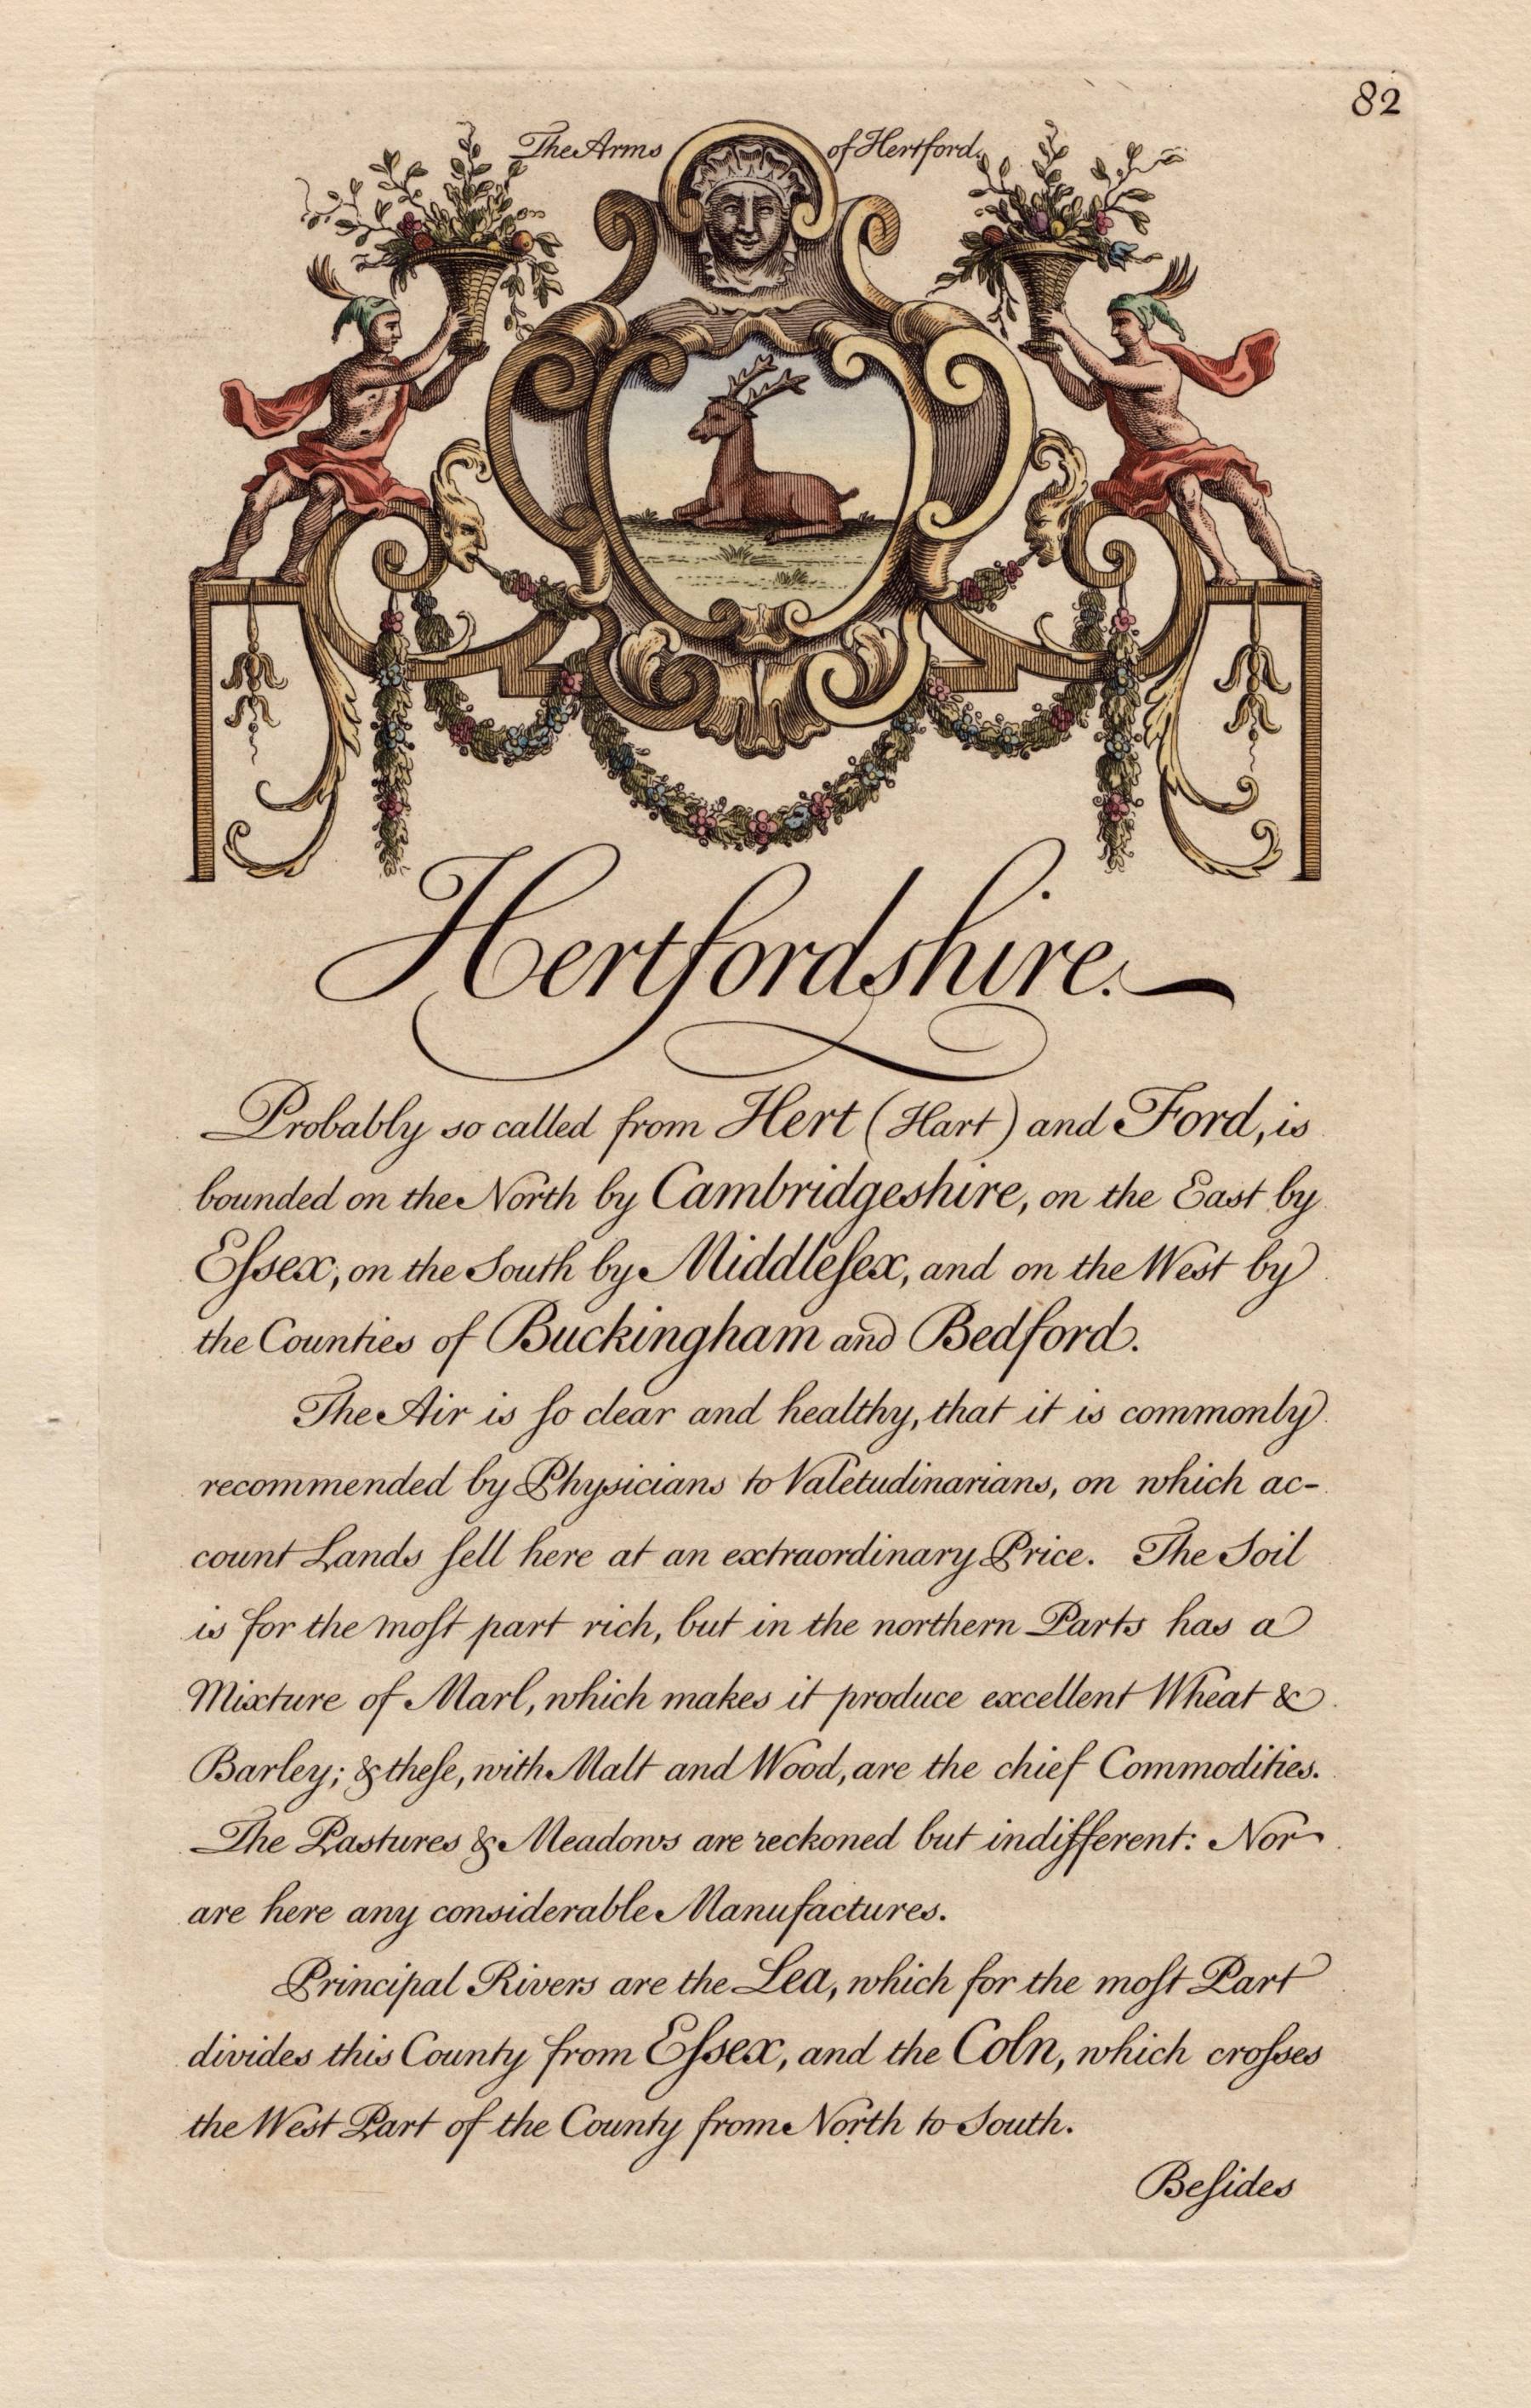 82
The Arms of Hertford.
Hertfordshire.
Probably so called from Hert (Hart) and Ford, is
bounded on the North by Cambridgeshire, on the East by
Eſsex, on the South by Middleſex, and on the West by
the Counties of Buckingham and Bedford.
The Air is ſo clear and healthy, that it is commonly
recommended by Physicians to Valetudinarians, on which ac-
count Lands ſell here at an extraordinary Price. The Soil
is for the moſt part rich, but in the northern Parts has a
Mixture of Marl, which makes it produce excellent Wheat &
Barley; & theſe, with Malt and Wood, are the chief Commodities.
The Pastures & Meadows are reckoned but indifferent: Nor
are here any considerable Manufactures.
Principal Rivers are the Lea, which for the moſt Part
divides this County from Eſsex, and the Coln, which croſses
the West Part of the County from North to South.
Beſides